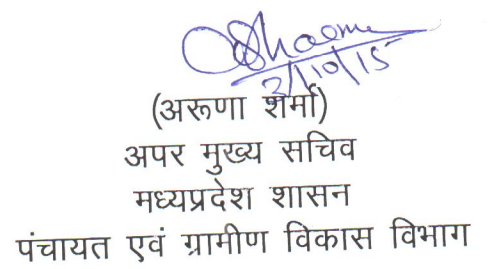 Sharma
3/10/15
(अरूणा शर्मा)
अपर मुख्य सचिव
मध्यप्रदेश शासन
पंचायत एवं ग्रामीण विकास विभाग